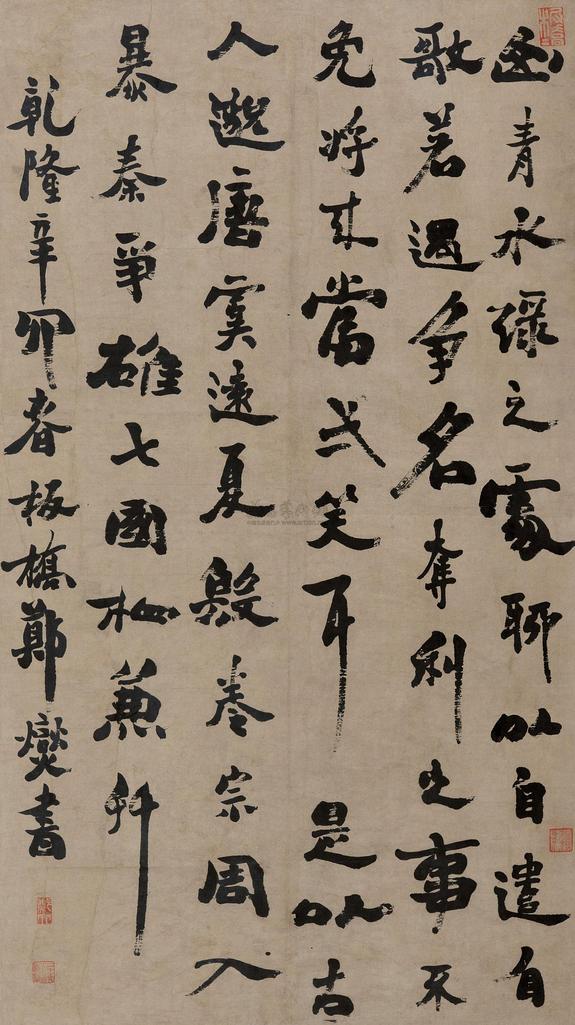 青水綠之處聊以自遣自
歌若遇爭名奪利之事不
免將來當弌笑耳是以古
人邈唐虞遠夏殷卷宗周入
暴秦爭雄七國相兼并
乾隆辛卯春板橋鄭燮書